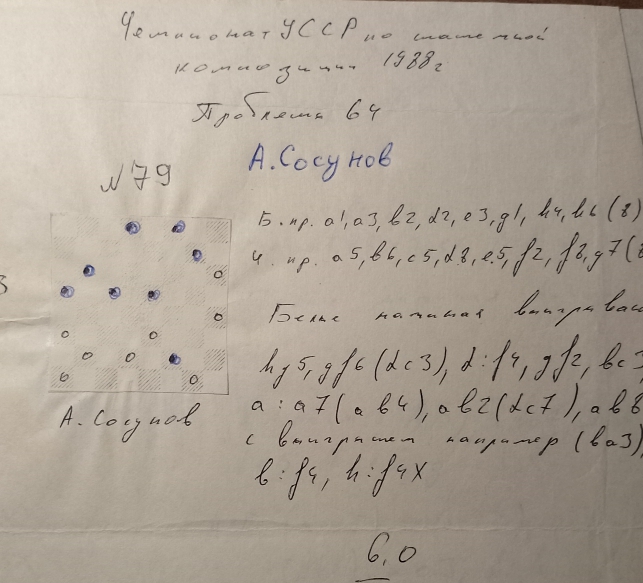 Чемпионат УССР по шашечной
композиции 1988г
Проблемы 64
№79
А.Сосунов
Б. пр. a1, a3, b2, d2, e3, g1, h4, h6 (8)
Ч. пр. a5, b6, c5, d8, e5, f2, f8, g7 (8
3
Белые начиная выигрываю
hg5, gf6 (dc3), d:f4, gf2, bc3
a:a7 (ab4), ab2 (dc7), ab8
с выигрышем например (ba3)
b:f4, h:f4X
А. Сосунов
6,0